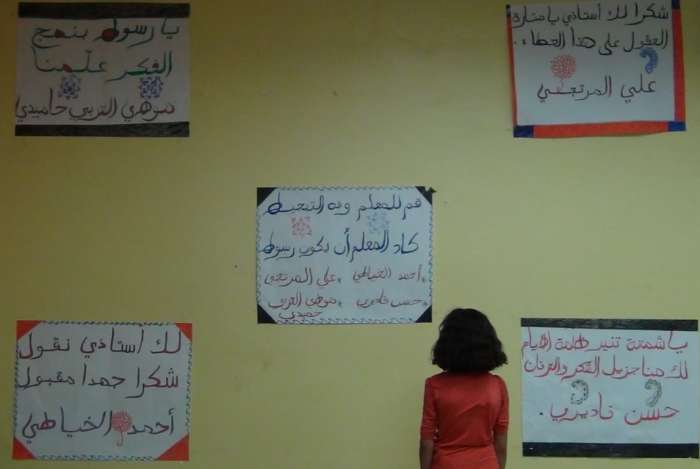 يا رسول بنهج
الفكر علّمنا
موهي التربي حاميدي
شكرا لك أستاذي يا منارة
العقول على هذا العطاء.
علي المرتجي
قم للمعلم وفه التبجيل
كاد المعلم أن يكون رسول
أحمد الخياطي علي المرتجي
حسن قادري موهي العربي
حميدي
لك أستاذي نقول
شكرا حمدا مقبول
أحمد الخياطي
يا شمعة تنير ظلمة الأيام
لك منا جزيل الشكر والعرفان
حسن قاديري.